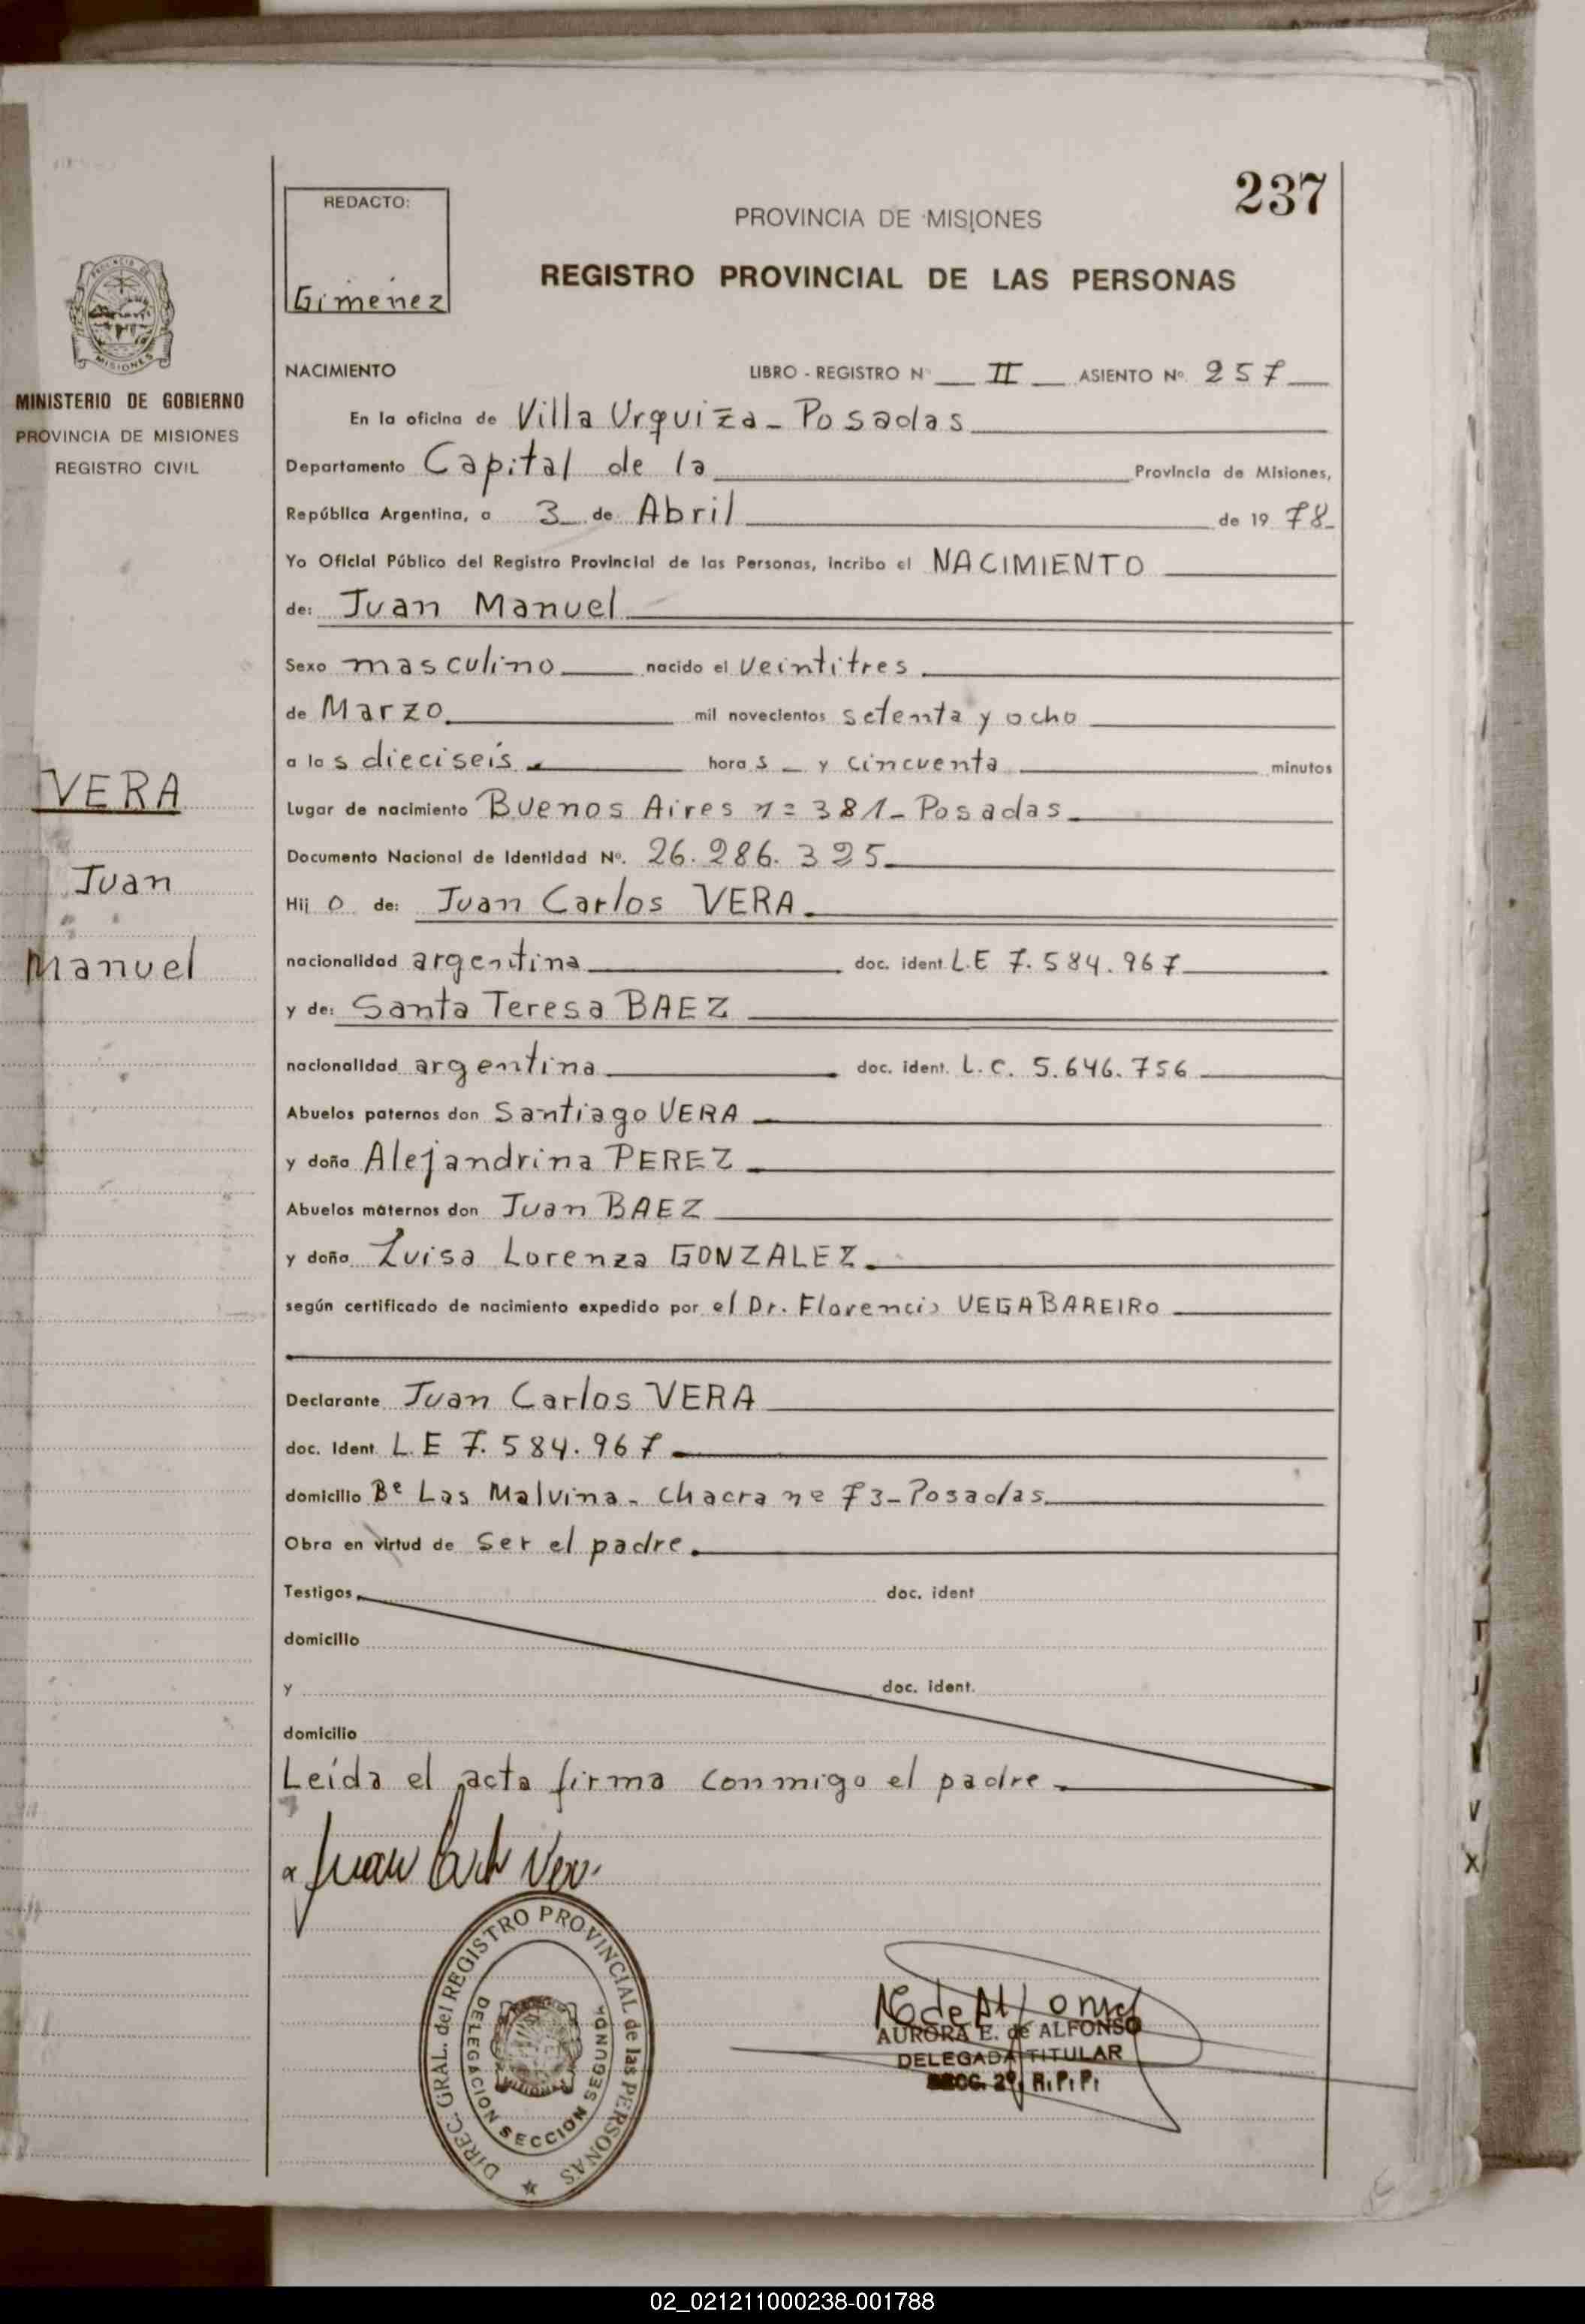 237
REDACTO:
Gimenez
PROVINCIA DE MISIONES
REGISTRO PROVINCIAL DE LAS PERSONAS
MISIONES
MINISTERIO DE GOBIERNO
PROVINCIA DE MISIONES
REGISTRO CIVIL
VERA
Juan
Manuel
NACIMIENTO LIBRO - REGISTRO Nº II ASIENTO Nº. 257
En la oficina de Villa Urquiza - Posadas
Departamento Capital de la Provincia de Misiones,
República Argentina, a 3 de Abril de 19 78
Yo Oficial Público del Registro Provincial de las Personas, incribo el NACIMIENTO
de: Juan Manuel
Sexo masculino nacido el veintitres
de Marzo mil novecientos setenta y ocho
a las dieciseis hora s y cincuenta minutos
Lugar de nacimiento Buenos Aires n= 381 - Posadas
Documento Nacional de Identidad Nº. 26.286.325
Hij o de: Juan Carlos VERA
nacionalidad argentina doc. ident L.E 7.584.967
y de: Santa Teresa BAEZ
nacionalidad argentina doc. ident. L.C. 5.646.756
Abuelos paternos don Santiago VERA
y doña Alejandrina PEREZ
Abuelos maternos don Juan BAEZ
y doña Luisa Lorenza GONZALEZ
según certificado de nacimiento expedido por el Dr. Florencio VEGA BAREIRO
Declarante Juan Carlos VERA
doc. Ident L.E 7.584.967
domicilio Bº Las Malvina - Chacra nº 73 - Posadas
Obra en virtud de ser el padre
Testigos doc. ident
domicilio
y doc. ident.
domicilio
Leída el acta firma conmigo el padre
Juan Carlos Vera
DIREC. GRAL. del REGISTRO PROVINCIAL de las PERSONAS
DELEGACION SECCION SEGUNDA
AURORA E. de ALFONSO
DELEGADA TITULAR
SECC. 2º, R.P.P.
T
J
V
X
02_021211000238-001788